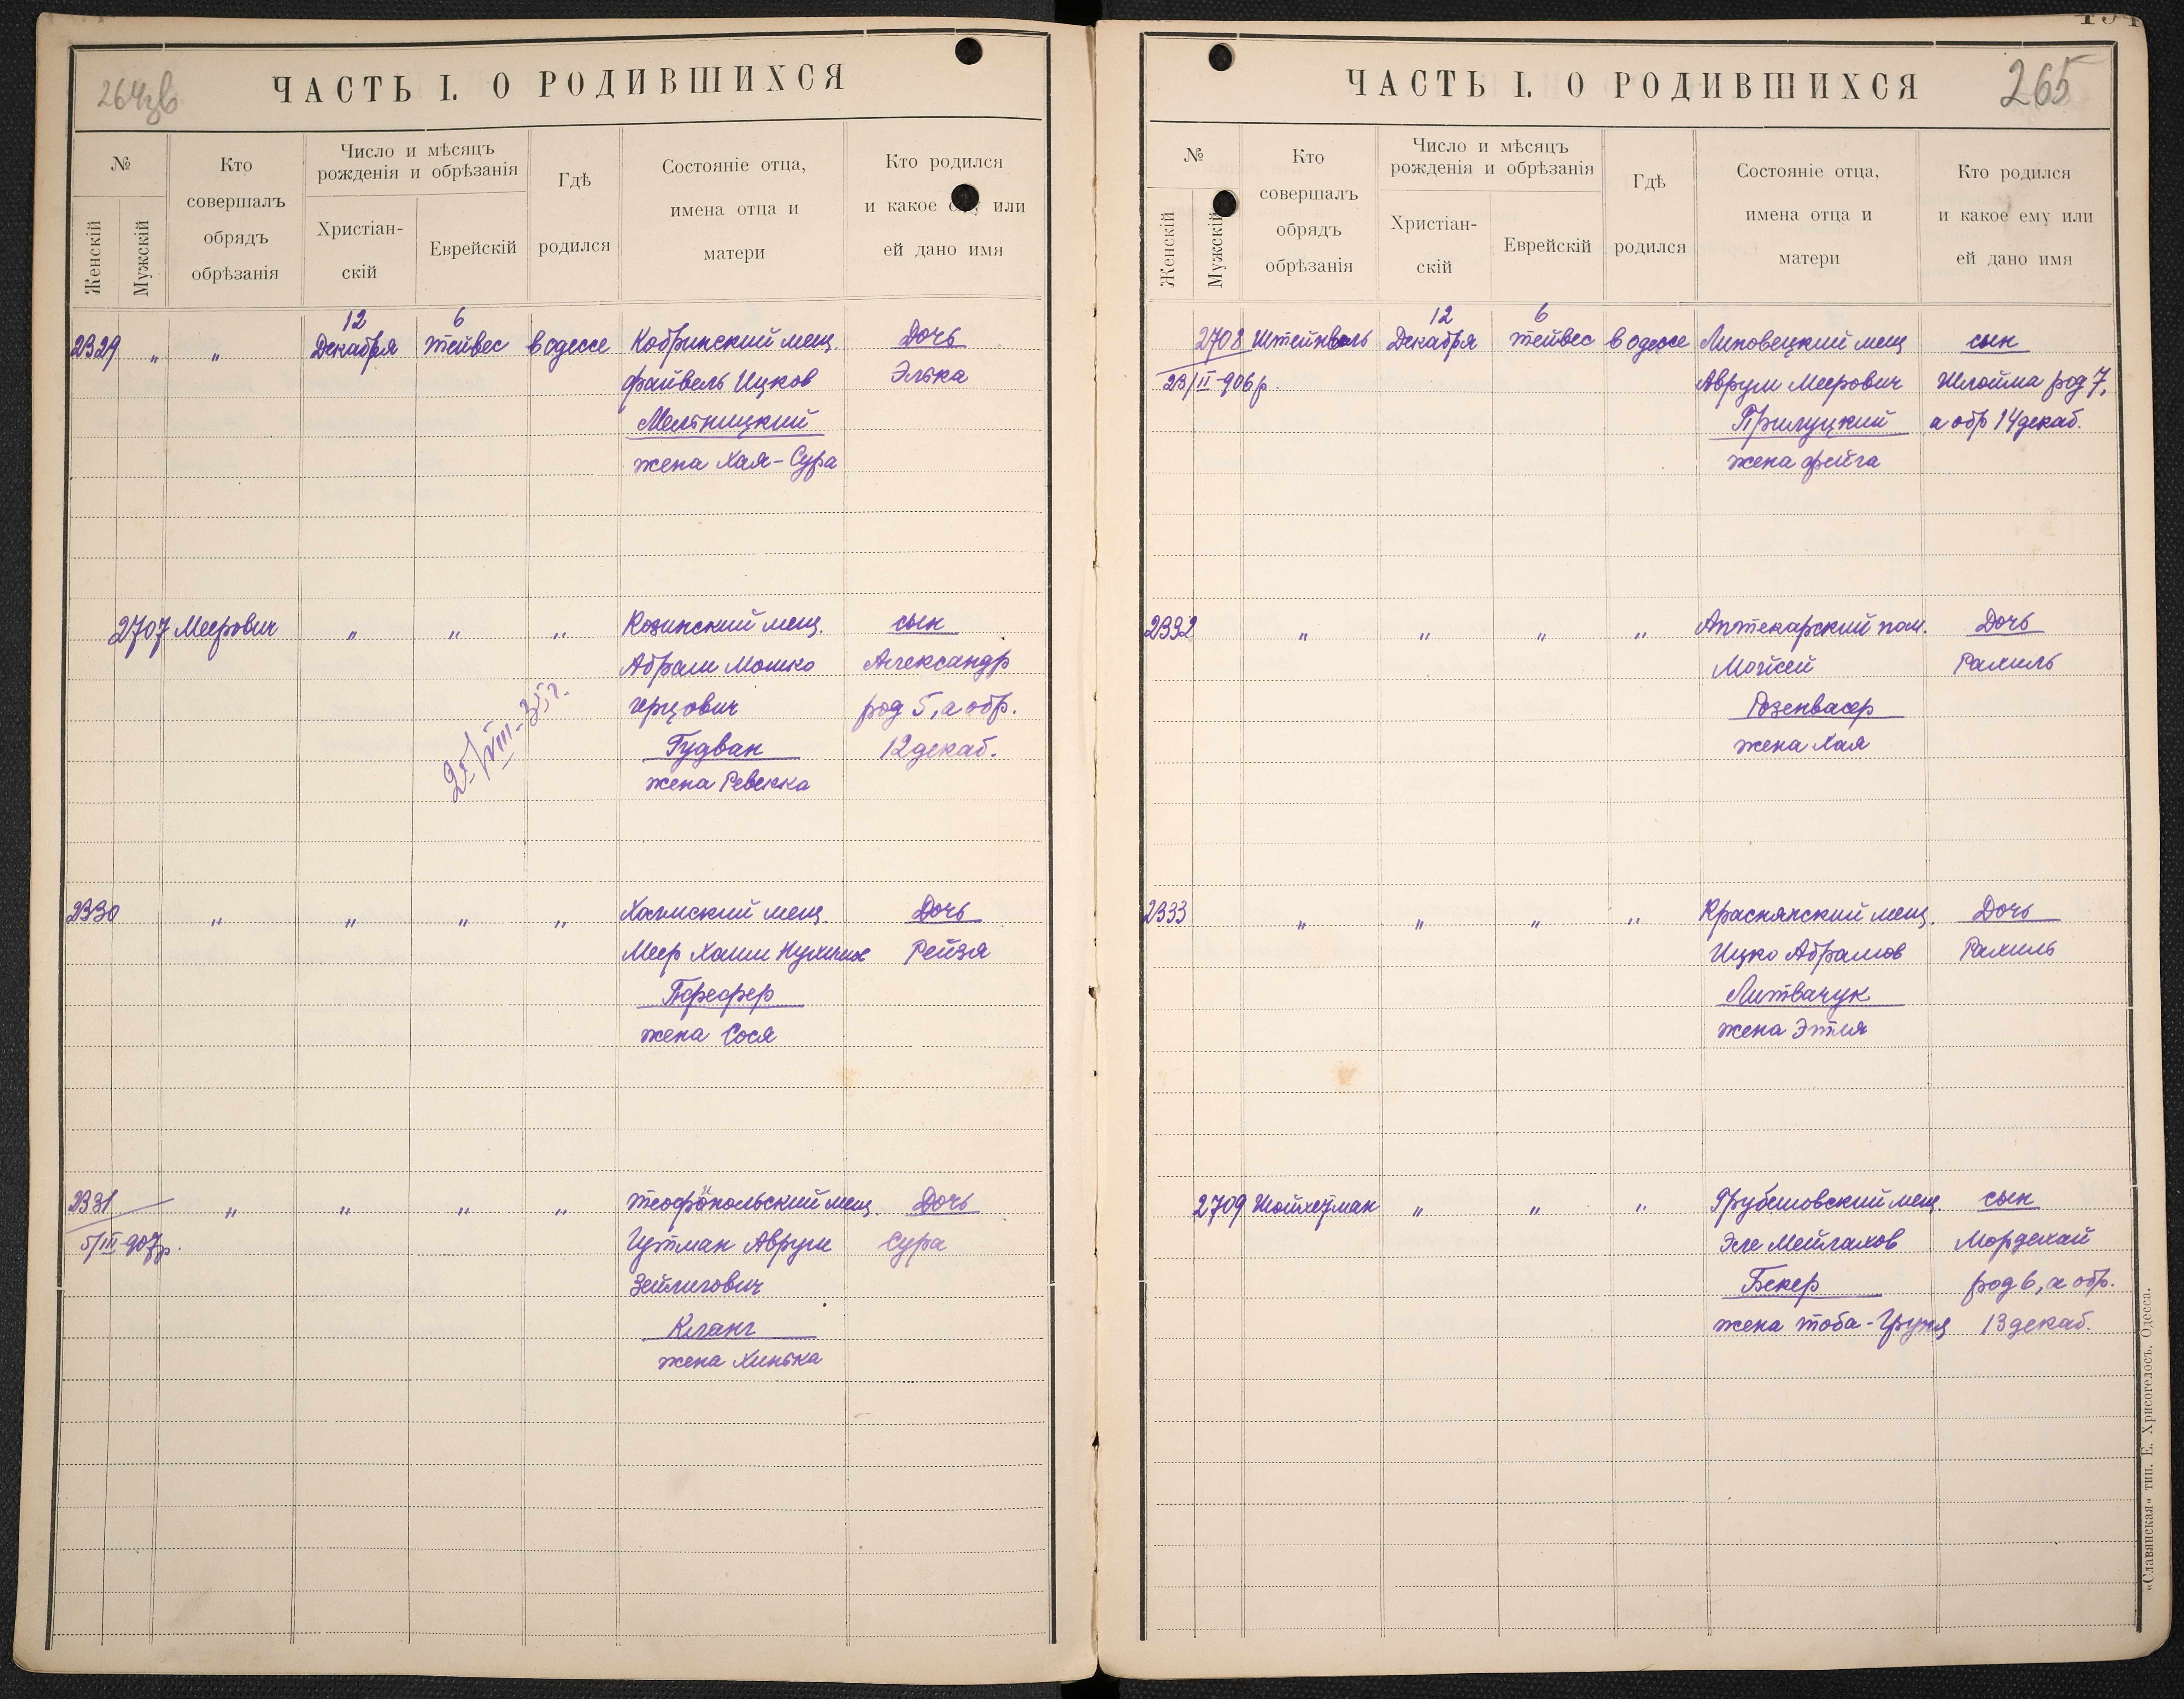 264зв
ЧАСТЬ I. О РОДИВШИХСЯ
№
Женскій
Мужскій
Кто
совершалъ
обрядъ
обрѣзанія
Число и мѣсяцъ
рожденія и обрѣзанія
Христіан-
скій
Еврейскій
Гдѣ
родился
Состояніе отца,
имена отца и
матери
Кто родился
и какое или
ей дано имя
12 6
2329 " " Декабря тейвес в одессе Кобринский мещ Дочь
файвель Ицков Элька
Мельницкий
жена Хая-Сура
2707 Меерович " " " Козинский мещ. сын
Абрам Мошко Александр
герцович род 5, а обр.
Гудван 12 декаб.
жена Ревекка
VIII-35г.
2330 " " " " Холмский мещ. Дочь
Меер Хаим Рейзя
Пфефер
жена Сося
2331 " " " " мещ. Дочь
5/III-907р. Гутман Аврум Сура
Зейлигович
Кланг
жена Хинька
265
ЧАСТЬ I. О РОДИВШИХСЯ
№
Женскій
Мужскій
Кто
совершалъ
обрядъ
обрѣзанія
Число и мѣсяцъ
рожденія и обрѣзанія
Христіан-
скій
Еврейскій
Гдѣ
родился
Состояніе отца,
имена отца и
матери
Кто родился
и какое ему или
ей дано имя
12 6
2708 Декабря тейвес в одессе Липовецкий мещ сын
23/II-906р. Аврум Меерович Шлойма род 7,
Прилуцкий а обр 14 декаб.
жена фейга
2332 " " " " Аптекарский пом. Дочь
Мойсей Рахиль
Розенвасер
жена Хая
2333 " " " " Краснянский мещ. Дочь
Ицко Абрамов Рахиль
Литвачук
жена Этля
2709 Шойхетман " " " Грубешовский мещ сын
Мейлахов Мордехай
Бекер род 6, а обр.
жена тоба-Груня 13 декаб.
«Славянская» тип. Е. Хрисогелосъ. Одесса.